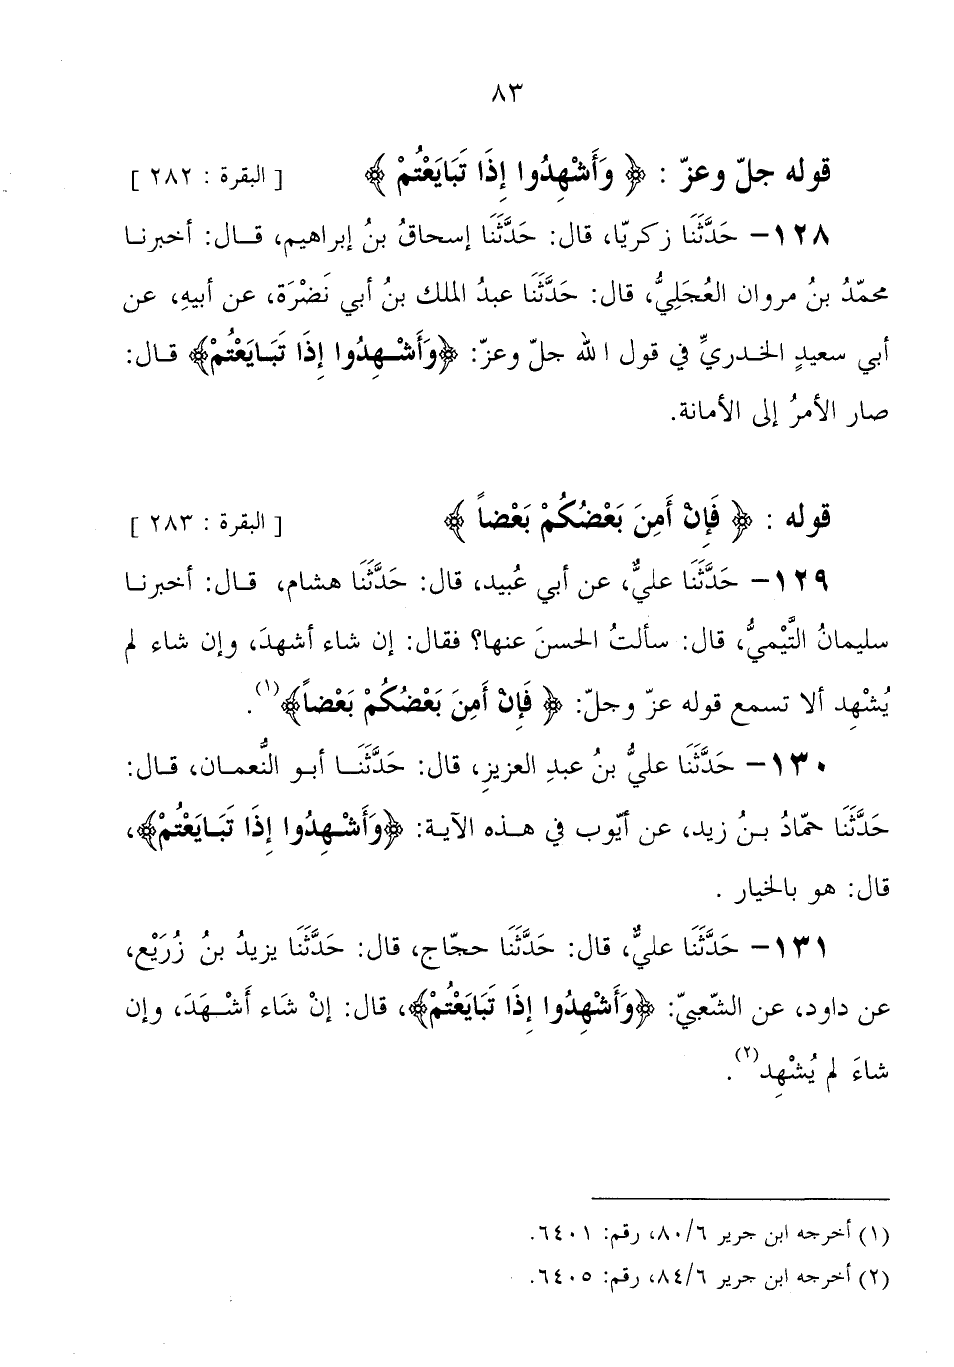 ٨٣
قوله جلّ وعزّ : ﴿ وَأَشْهِدُوا إِذَا تَبَايَعْتُمْ ﴾ [ البقرة : ٢٨٢ ]
١٢٨– حَدَّثَنَا زكريّا، قال: حَدَّثَنَا إسحاقُ بنُ إبراهيم، قـال: أخبرنـا
محمّدُ بنُ مروان العُجَلِيُّ، قال: حَدَّثَنَا عبدُ الملك بنُ أبي نَضْرَة، عن أبيهِ، عن
أبي سعيدٍ الخـدريِّ في قول الله جلّ وعزّ: ﴿وَأَشْـهِدُوا إِذَا تَبَـايَعْتُمْ﴾ قـال:
صار الأمرُ إلى الأمانة.
قوله : ﴿ فَإِنْ أَمِنَ بَعْضُكُمْ بَعْضاً ﴾ [ البقرة : ٢٨٣ ]
١٢٩– حَدَّثَنَا عليٌّ، عن أبي عُبيد، قال: حَدَّثَنَا هشام، قـال: أخبرنـا
سليمانُ التَّيْميُّ، قال: سألتُ الحسنَ عنها؟ فقال: إن شاء أشهدَ، وإن شاء لم
يُشْهِد ألا تسمع قوله عزّ وجلّ: ﴿ فَإِنْ أَمِنَ بَعْضُكُمْ بَعْضاً﴾(١).
١٣٠– حَدَّثَنَا عليُّ بنُ عبدِ العزيزِ، قال: حَدَّثَنَـا أبـو النُّعمـان، قـال:
حَدَّثَنَا حمّادُ بـنُ زيد، عن أيّوب في هـذه الآيـة: ﴿وَأَشْـهِدُوا إِذَا تَبَـايَعْتُمْ﴾،
قال: هو بالخيار .
١٣١– حَدَّثَنَا عليٌّ، قال: حَدَّثَنَا حجّاج، قال: حَدَّثَنَا يزيدُ بنُ زُرَيْع،
عن داود، عن الشّعبيّ: ﴿وَأَشْهِدُوا إِذَا تَبَايَعْتُمْ﴾، قال: إنْ شَاء أَشْـهَدَ، وإن
شاءَ لم يُشْهِد(٢).
(١) أخرجه ابن جرير ٨٠/٦، رقم: ٦٤٠١.
(٢) أخرجه ابن جرير ٨٤/٦، رقم: ٦٤٠٥.